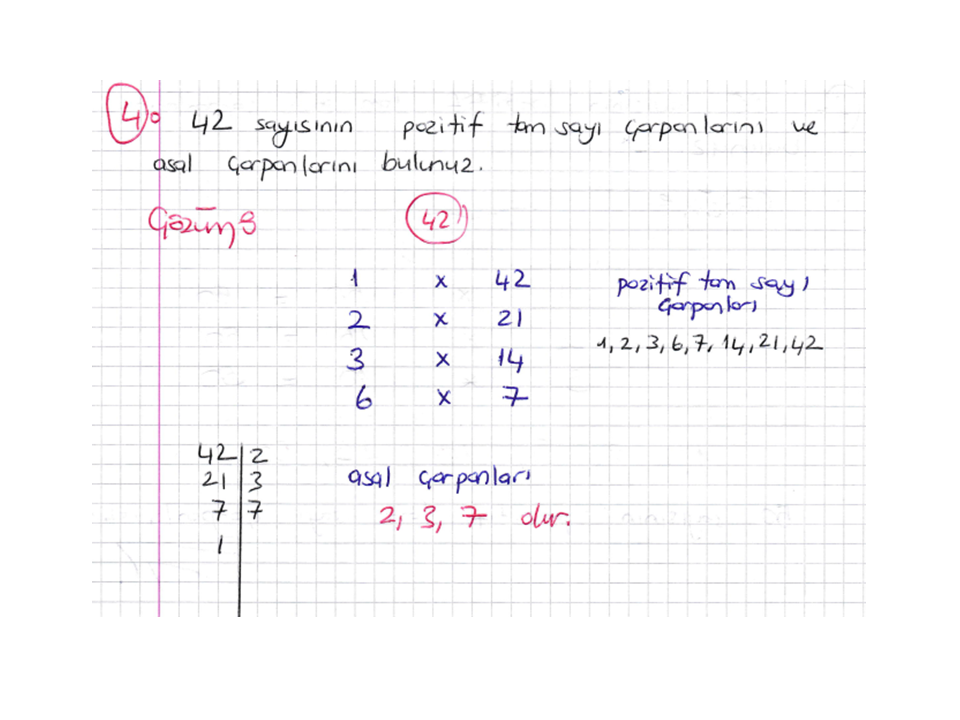 4. 42 sayısının pozitif tam sayı çarpanlarını ve
asal çarpanlarını bulunuz.
Çözüm:
42
1 x 42
2 x 21
3 x 14
6 x 7
pozitif tam sayı
çarpanları
1, 2, 3, 6, 7, 14, 21, 42
42 | 2
21 | 3
7 | 7
1
asal çarpanları
2, 3, 7 olur.